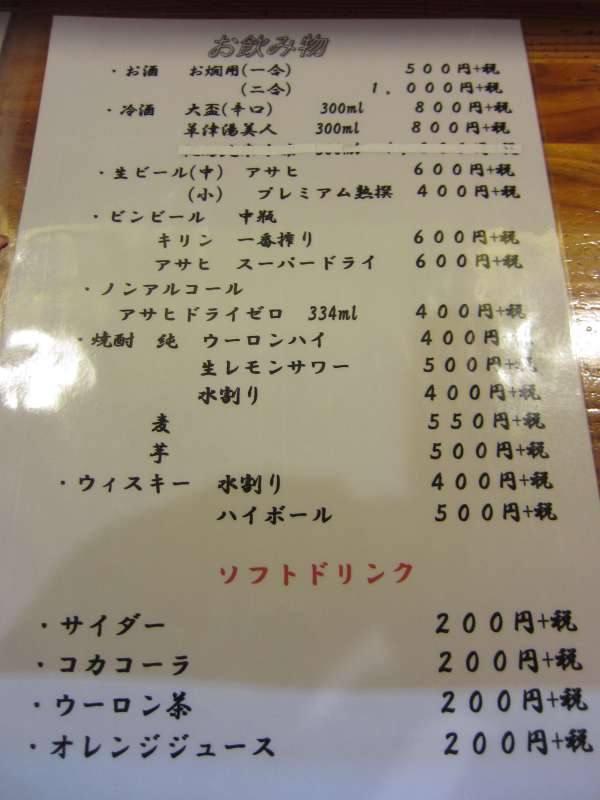 お飲み物
・お酒 お燗用(一合) 500円+税
(二合) 1,000円+税
・冷酒 大盃(辛口) 300ml 800円+税
草津湯美人 300ml 800円+税
・生ビール(中) アサヒ 600円+税
(小) プレミアム熟撰 400円+税
・ビンビール 中瓶
キリン 一番搾り 600円+税
アサヒ スーパードライ 600円+税
・ノンアルコール
アサヒドライゼロ 334ml 400円+税
・焼酎 純 ウーロンハイ 400円+税
生レモンサワー 500円+税
水割り 400円+税
麦 550円+税
芋 500円+税
・ウィスキー 水割り 400円+税
ハイボール 500円+税
ソフトドリンク
・サイダー 200円+税
・コカコーラ 200円+税
・ウーロン茶 200円+税
・オレンジジュース 200円+税